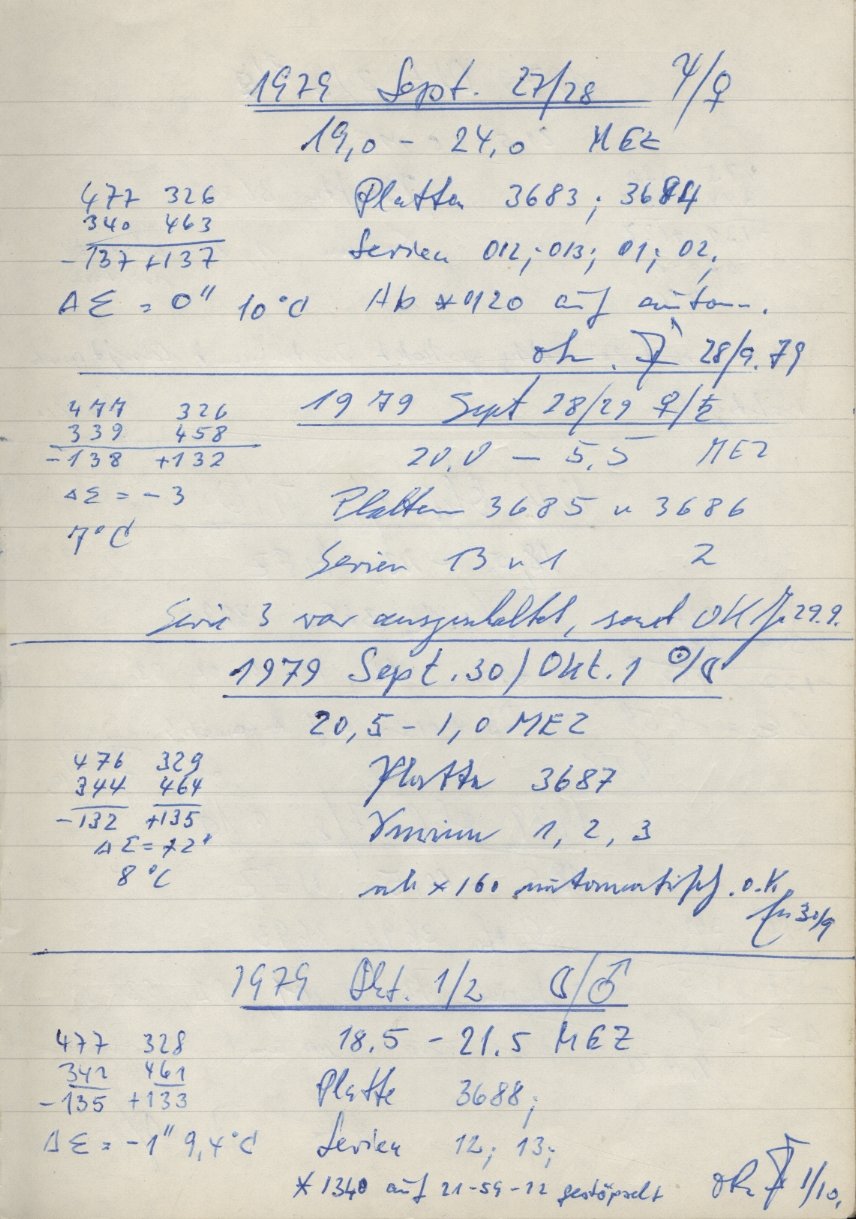 1979 Sept. 27/28 ♃/♀
19,0 – 24,0 MEZ
477 326 Platten 3683; 3684
340 463 Serien 012; 013; 01; 02;
-137 +137
ΔΣ = 0" 10°C Ab *0120 auf autom.
28/9.79
477 326 1979 Sept 28/29 ♀/♄
339 458
-138 +132 20,0 – 5,5 MEZ
ΔΣ = -3 Platten 3685 u 3686
7°C
Serien 13 u 1 2
Serie 3 war ausgeschaltet, sonst OK 29.9.
1979 Sept. 30/Okt. 1 ☉/☾
20,5 – 1,0 MEZ
476 329 Platte 3687
344 464
-132 +135 1, 2, 3
ΔΣ = 12"
8°C ab *160 automatisch. o.K.
30/9
1979 Okt. 1/2 ☾/♂
477 328 18.5 – 21.5 MEZ
342 461 Platte 3688;
-135 +133
ΔΣ = -1" 9,4°C Serien 12; 13;
*1340 auf 21-59-12 gestöpselt 1/10.